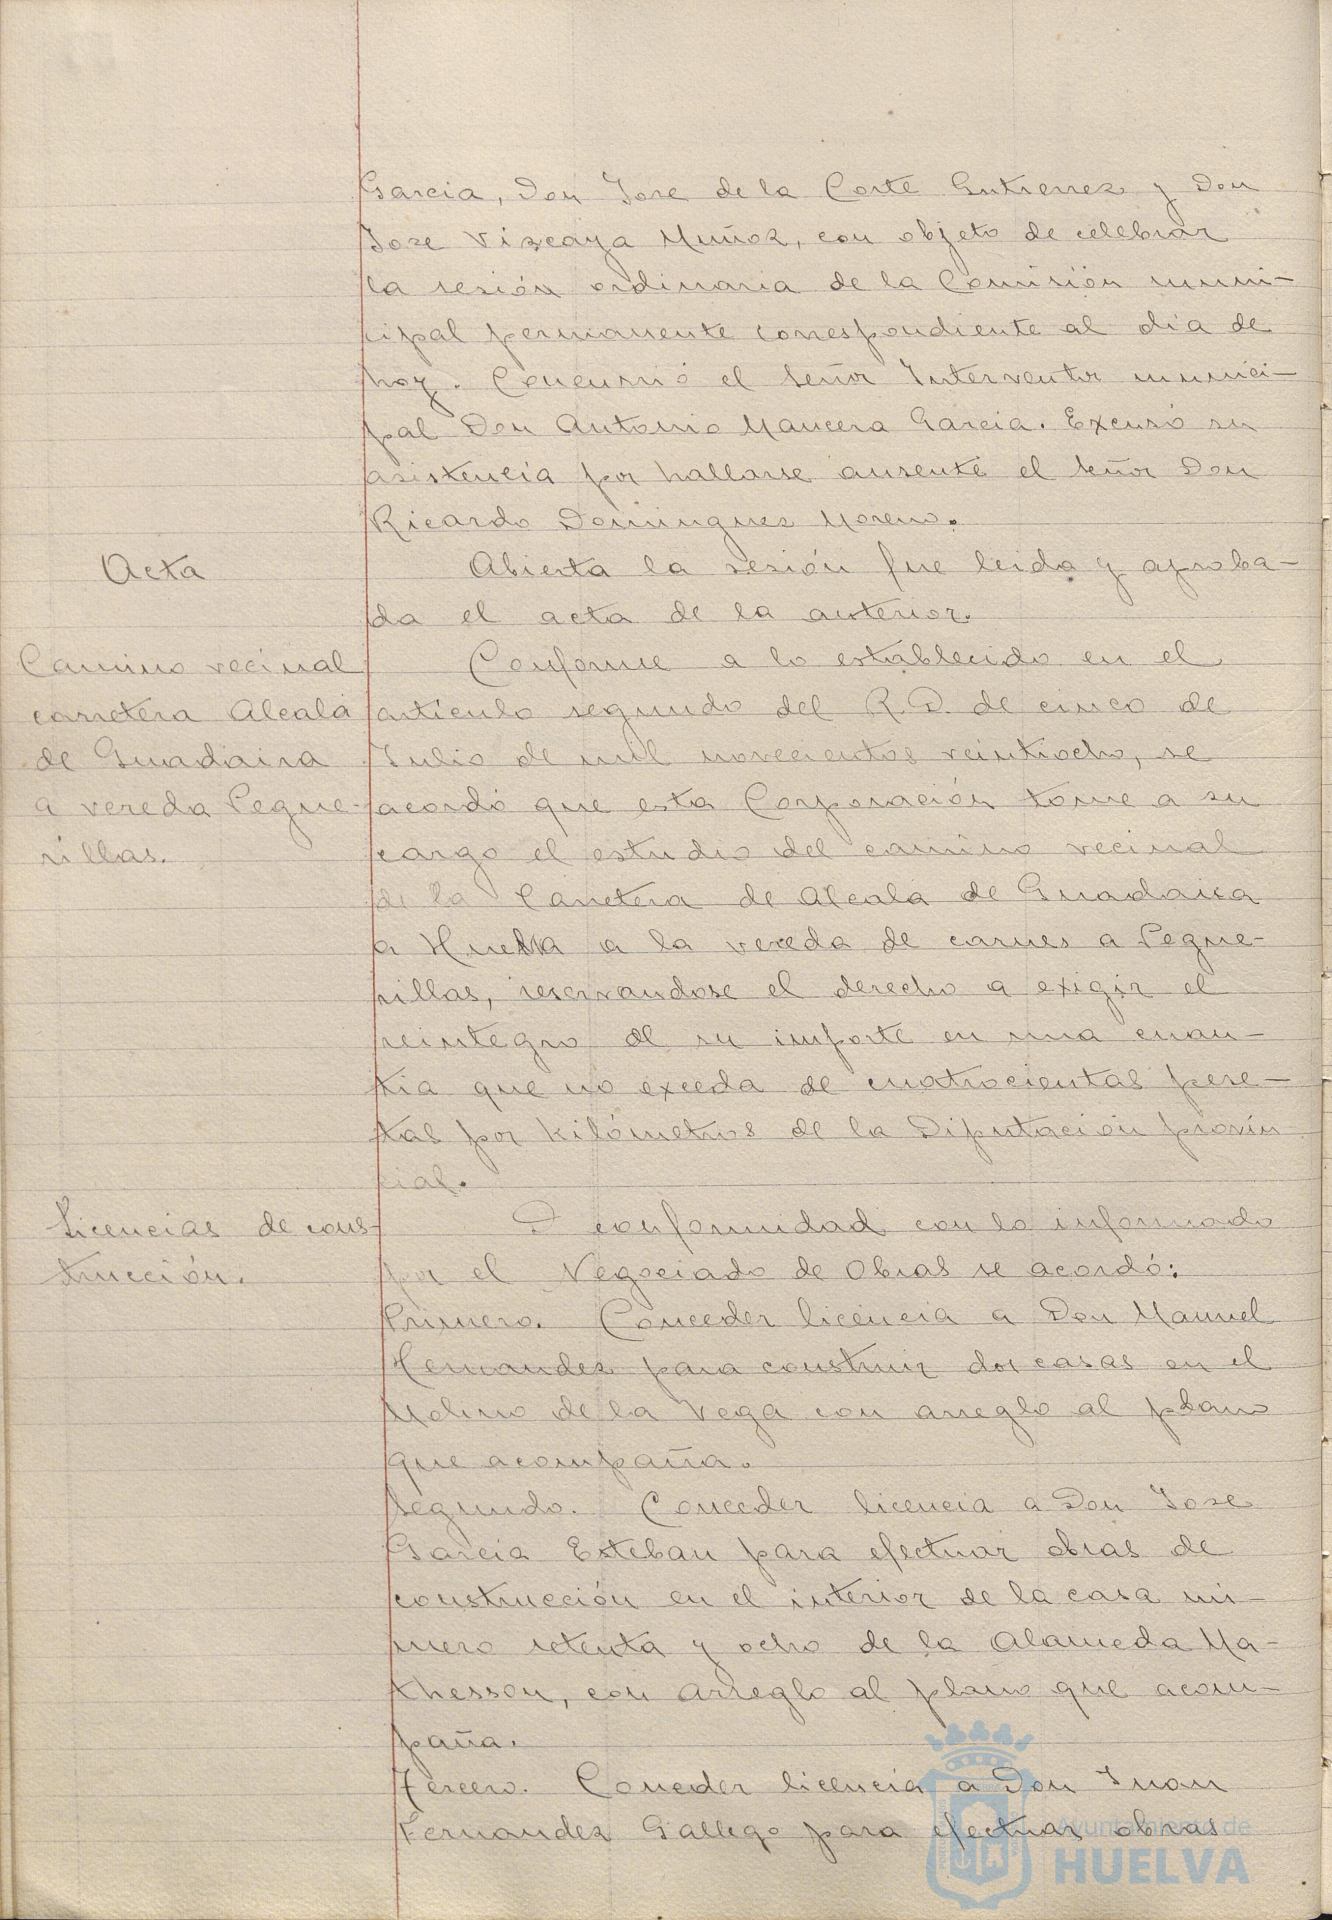 Garcia, Don Jose de la Corte Gutierrez y Don
Jose Vizcaya Muñoz, con objeto de celebrar
la sesión ordinaria de la Comisión muni-
cipal permanente correspondiente al día de
hoy. Concurrió el Señor Interventor munici-
pal Don Antonio Mancera Garcia. Excusó su
asistencia por hallarse ausente el Señor Don
Ricardo Dominguez Moreno.
Acta
Abierta la sesión fue leida y aproba-
da el acta de la anterior.
Camino vecinal
carretera Alcalá
de Guadaira
a vereda Pegue-
rillas.
Conforme a lo establecido en el
artículo segundo del R.D. de cinco de
Julio de mil novecientos veintiocho, se
acordó que esta Corporación tome a su
cargo el estudio del camino vecinal
de la Carretera de Alcalá de Guadaira
a Huelva a la vereda de carnes a Pegue-
rillas, reservandose el derecho a exigir el
reintegro de su importe en una cuan-
tia que no exceda de cuatrocientas pese-
tas por kilómetros de la Diputación provin
cial.
Licencias de cons-
trucción.
D conformidad con lo informado
por el Negociado de Obras se acordó:
Primero. Conceder licencia a Don Manuel
Hernandez para construir dos casas en el
Molino de la Vega con arreglo al plano
que acompaña.
Segundo. Conceder licencia a Don Jose
Garcia Esteban para efectuar obras de
construcción en el interior de la casa nú-
mero setenta y ocho de la Alameda Ma-
thesson, con arreglo al plano que acom-
paña.
Tercero. Conceder licencia a Don Juan
Fernandez Gallego para efectuar obras
Ayuntamiento de
HUELVA